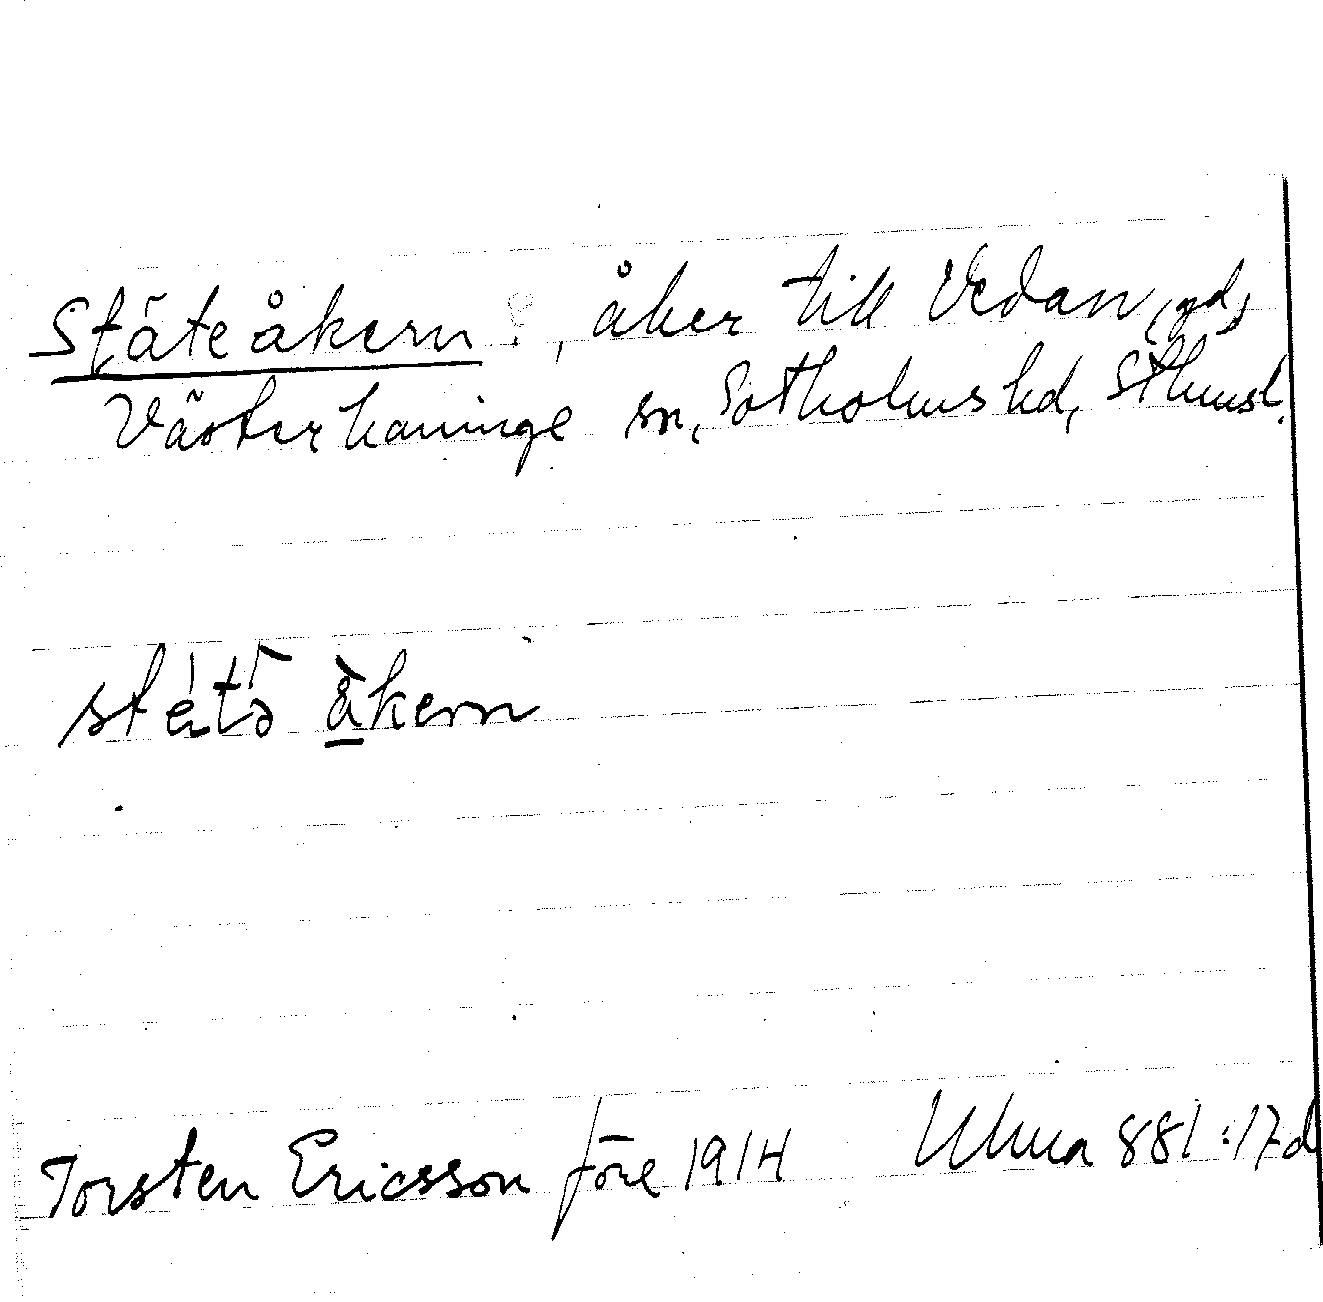 Stäteåkern ?, åker till Vedan, gd,
Västerhaninge sn, Sotholms hd, Sthmsl.
åkern
Torsten Ericsson före 1914 Ulma 881:17d